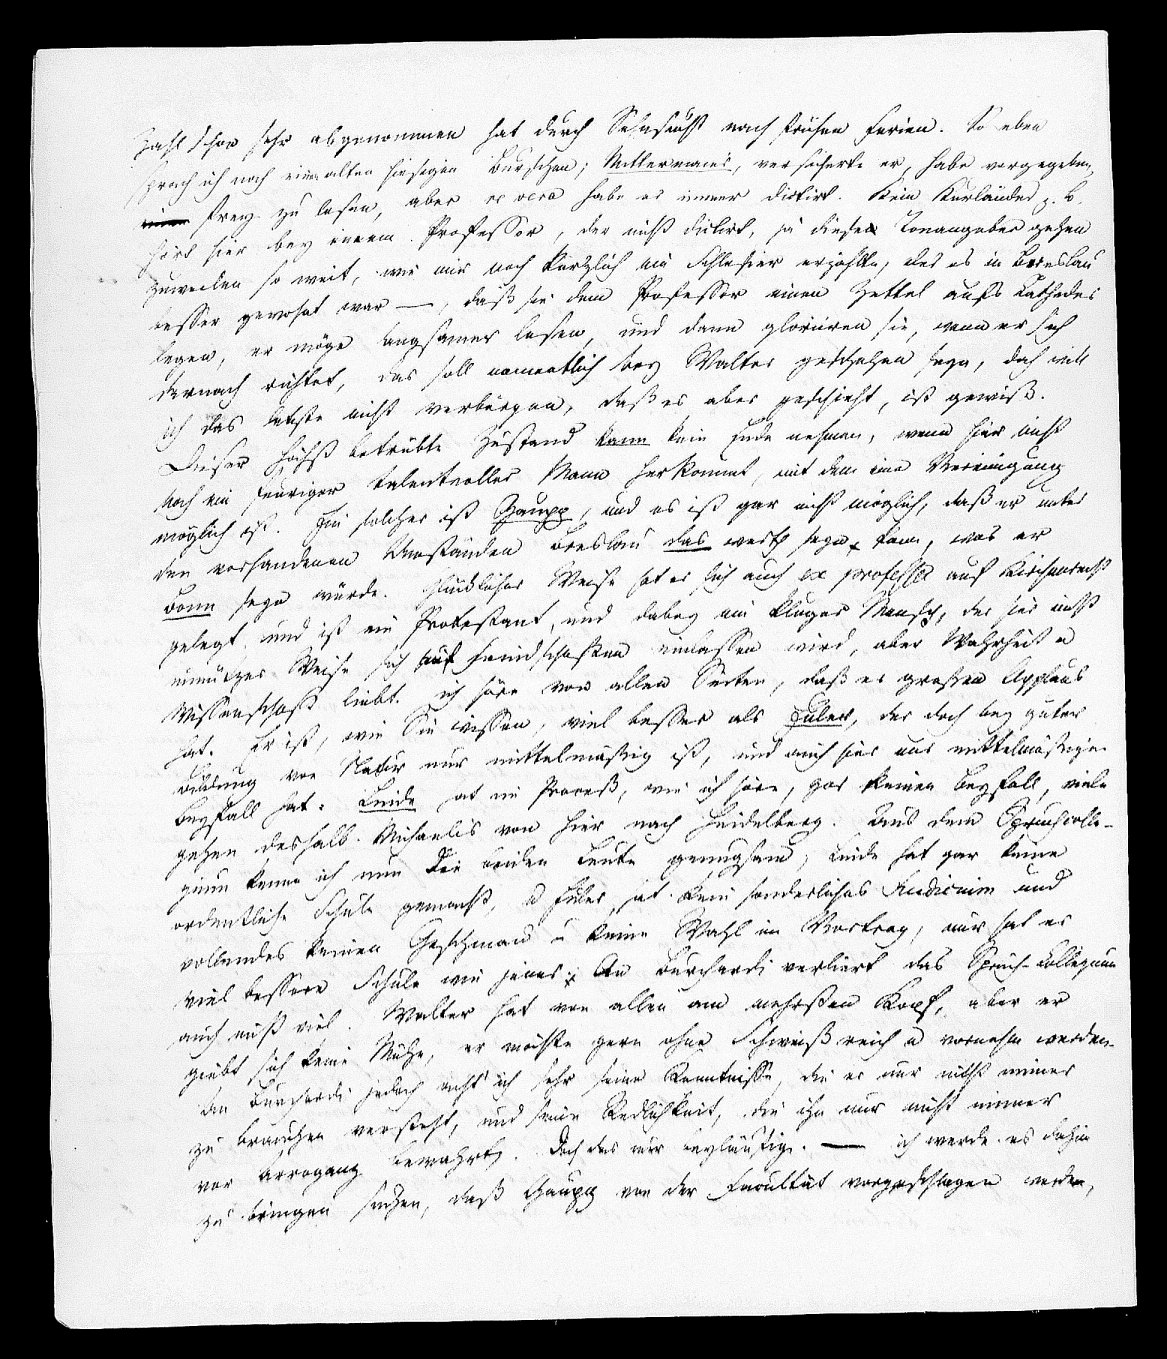 Zahl schon sehr abgenommen hat durch Sehnsucht nach frühen Ferien. So eben
sprach ich noch einen alten hiesigen Burschen; Mittermaier, versicherte er, habe vorgegeben,
frey zu lesen, aber re vera habe er immer dictirt. Kein Kurländer z. B.
hört hier bey einem Professor, der nicht dictirt, ja diese Tonangeber gehen
zuweilen so weit, wie mir noch kürzlich ein Schlesier erzählte, der es in Breslau
besser gewohnt war —, daß sie dem Professor einen Zettel aufs Catheder
legen, er möge langsamer lesen, und dann gloriiren sie, wenn er sich
darnach richtet, das soll namentlich bey Walter geschehen seyn, doch will
ich das letzte nicht verbürgen, daß es aber geschieht, ist gewiß.
Dieser höchst betrübte Zustand kann kein Ende nehmen, wenn hier nicht
noch ein feuriger talentvoller Mann herkommt, mit dem eine Vereinigung
möglich ist. Ein solcher ist Gaupp, und es ist gar nicht möglich, daß er unter
den vorhandenen Umständen Breslau das werth seyn kann, was er
Bonn seyn würde. Glücklicher Weise hat er sich auch ex professo auf Kirchenrecht
gelegt und ist ein Protestant, und dabey ein kluger Mensch, der sich nicht
unnützer Weise auf Feindschaften einlassen wird, aber Wahrheit u
Wissenschaft liebt. Ich höre von allen Seiten, daß er großen Applaus
hat. Er ist, wie Sie wissen, viel besser als Euler, der doch bey guter
Bildung von Natur nur mittelmäßig ist, und auch hier nur mittelmäßigen
Beyfall hat. Linde hat im Proceß, wie ich höre, gar keinen Beyfall, viele
gehen deshalb Michaelis von hier nach Heidelberg. Aus dem Spruchcolle-
gium kenne ich nun die beiden Leute genugsam; Linde hat gar keine
ordentliche Schule gemacht, u Euler hat kein sonderliches Judicium und
vollendes keinen Geschmack u keine Wahl im Vortrag, nur hat er
viel bessere Schule wie jener; An Burchardi verliert das Spruch-Collegium
auch nicht viel. Walter hat von allen am mehrsten Kopf, aber er
giebt sich keine Mühe, er möchte gern ohne Schweiß reich u vornehm werden.
An Burchardi jedoch acht' ich sehr seine Kenntnisse, die er nur nicht immer
zu brauchen versteht, und seine Redlichkeit, die ihn nur nicht immer
vor Arroganz bewahrt. Doch das nur beyläufig. — ich werde es dahin
zu bringen suchen, daß Gaupp von der Facultät vorgeschlagen werde,